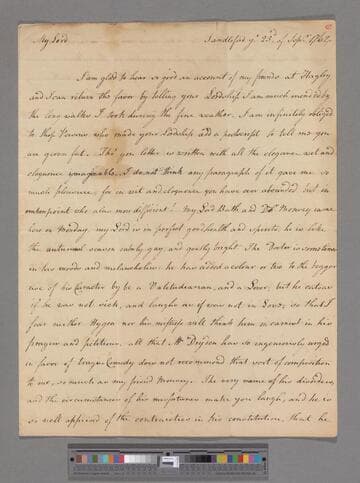 My Lord Sandleford ye 23d of Sepr 1762
I am glad to hear so good an account of my friends at Hagley
and I can return the favor by telling your Lordship I am much mended by
the long walks I took during the fine weather. I am infinitely obliged
to those Visions who made your Lordship add a postscript to tell me you
are grown fat. Tho' your letter is written with all the elegance wit and
eloquence imaginable, I do not think any paragraph of it gave me so
much pleasure; for in wit and eloquence you have ever abounded but in
embonpoint you alas were difficient! My Lord Bath and Dr Monsey came
here on Monday. my Lord is in perfect good health and spirits, he is like
the autumnal season calmly gay, and gently bright. The Doctor is sometimes
in his moods and melancholies: he has added a colour or two to the
ness of his Character by being a Valetudinarian, and a Lover; but he eats as
if he was not sick, and laughs as if he was not in Love, so that I
fear neither Hygeia nor his mistress will think him in earnest in his
prayers and petitions. all that Mr Dryden has so ingeniously urged
in favor of Tragi-Comedy does not recommend that sort of composition
to me, so much as my friend Monsey. The very name of his disorders,
and the circumstances of his misfortunes make you laugh, and he is
so well apprised of the contradiction in his constitution, that he